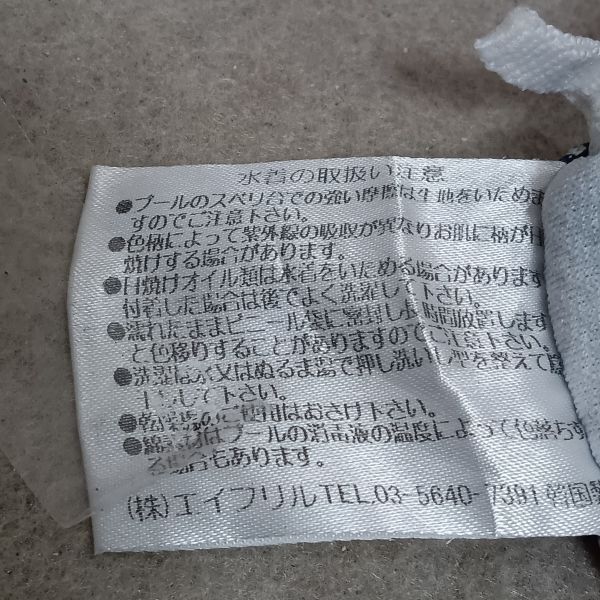 水着の取扱い注意
●プールのスベリ台での強い摩擦は生地をいためま
すのでご注意下さい。
●色柄によって紫外線の吸収が異なりお肌に柄が日
焼けする場合があります。
●日焼けオイル類は水着をいためる場合があります
付着した場合は後でよく洗濯して下さい。
●濡れたままビニール袋に密封し長時間放置します
と色移りすることがありますのでご注意下さい。
●洗濯は水又はぬるま湯で押し洗いし型を整えて陰
干しして下さい。
●乾燥機のご使用はおさけ下さい。
●綿素材はプールの消毒液の温度によって色落ちす
る場合もあります。
(株)エイプリルTEL.03-5640-7391 韓国製